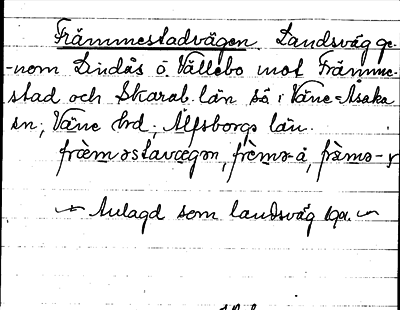 Främmestadvägen Landsväg ge-
-nom Lindås ö. Vällebo mot Främme-
stad och Skarab. län så i Väne-Åsaka
sn; Väne hrd; Älfsborgs län.
fræ̀məstavægən, frèmə-å, fræ̀mə-
Anlagd som landsväg